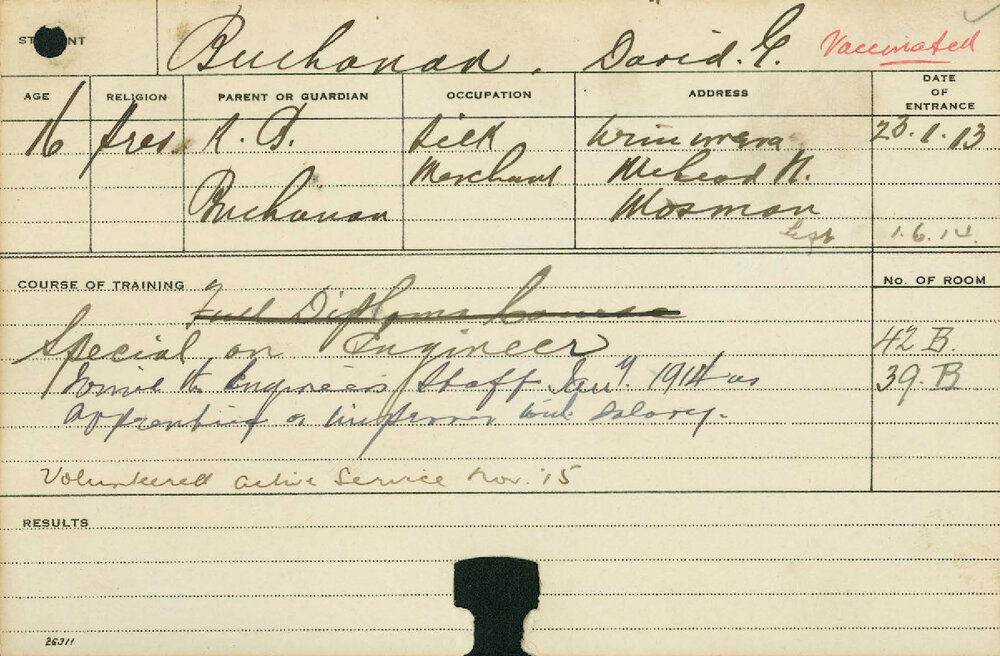 STUDENT Buchanan, David. G. Vaccinated
AGE RELIGION PARENT OR GUARDIAN OCCUPATION ADDRESS DATE OF ENTRANCE
16 Pres. Silk 23.1.13
Merchant McLeod
Buchanan Mosman
Left 1.6.14.
COURSE OF TRAINING No. OF ROOM
Full Diploma Course
Special on Engineer 42 B.
Engineers Staff Jany. 1914 as 39. B
Salary.
Volunteered active Service Nov. '15
RESULTS
26311